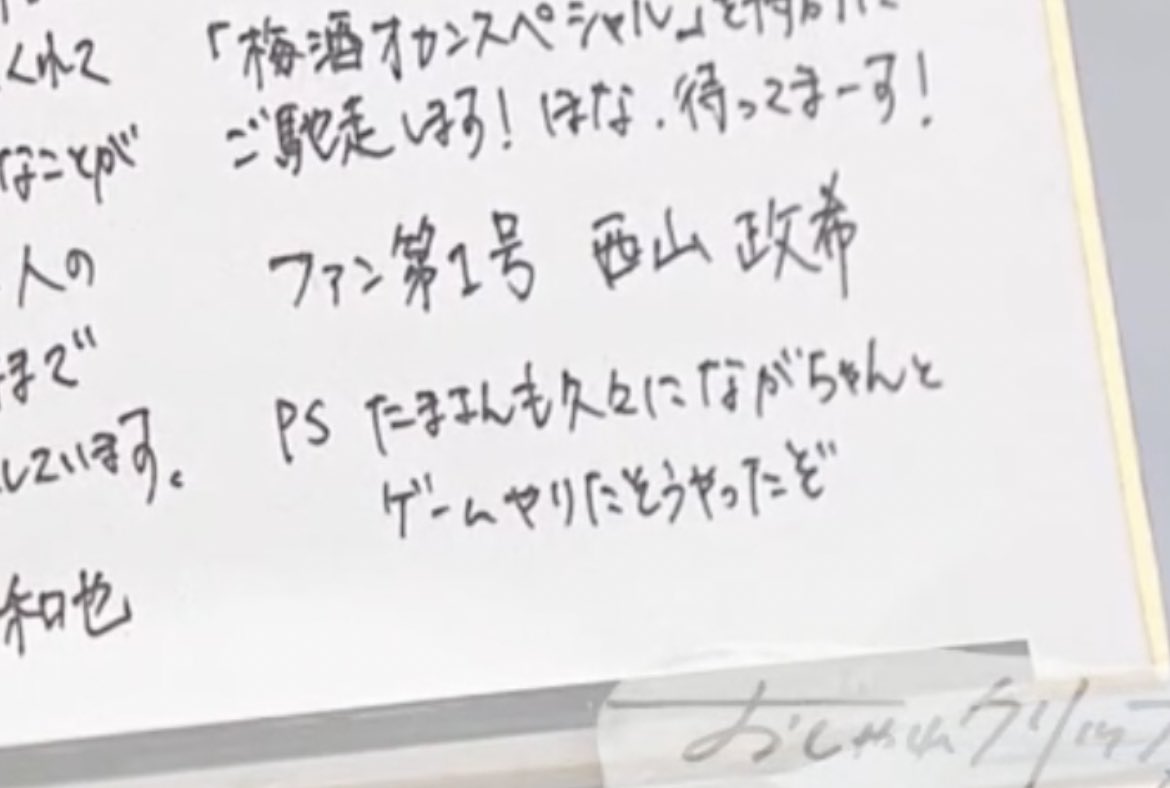 くれて
なことが
人の
まで
しています。
和也
「梅酒オカンスペシャル」を
ご馳走します! ほな、待ってまーす!
ファン第1号 西山 政希
PS たまさんも久々にながちゃんと
ゲームやりたそうやったぞ
おしゃれクリップ